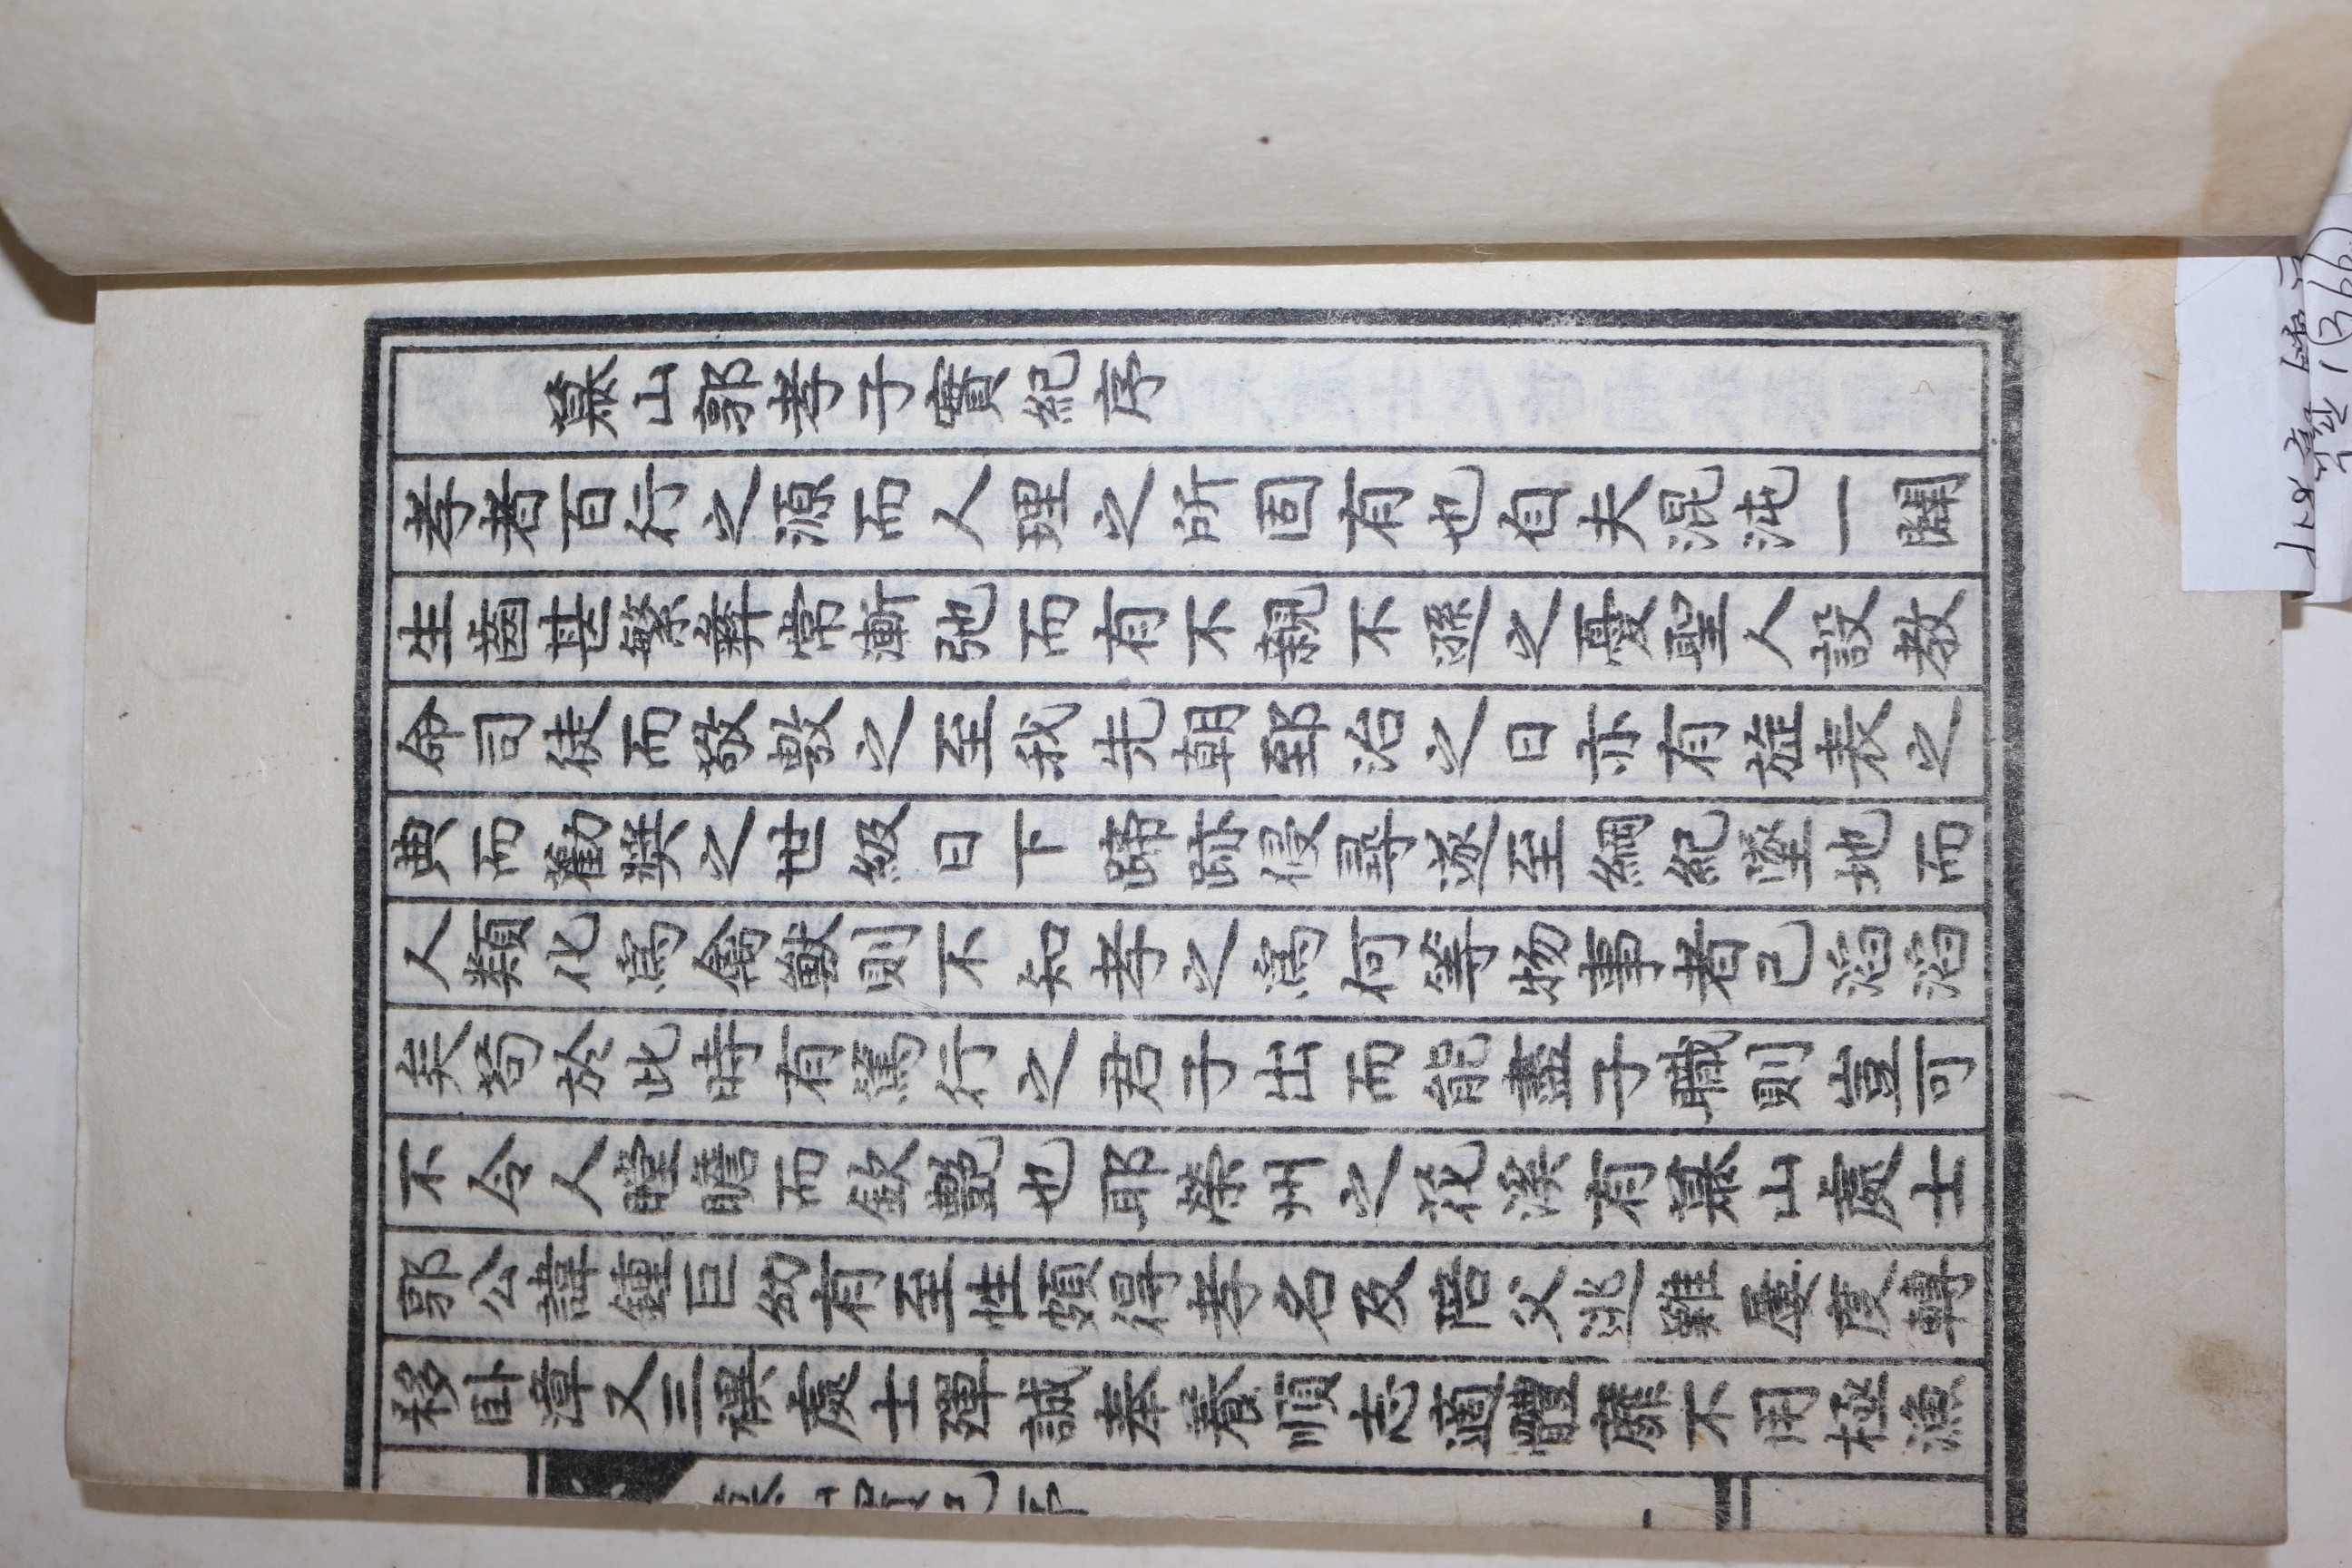 墓山郭孝子實紀序
孝者百行之源而人理之所固有也自夫混沌一闢
生齒甚繁彝常漸弛而有不親不遜之憂聖人設教
命司徒而敬敷之至我先朝郅治之日亦有旌表之
典而勸奬之世級日下蹄跡侵尋遂至綱紀墜地而
人類化爲禽獸則不知孝之爲何等物事者已滔滔
矣苟於此時有篤行之君子出而能盡子職則豈可
不令人瞠瞻而欽艶也耶榮州之花溪有墓山處士
郭公諱鍾巨幼有至性頗得孝名及陪父逃難屢度轉
移臥漳又三禩處士殫誠奉養順志適體靡不用極漁